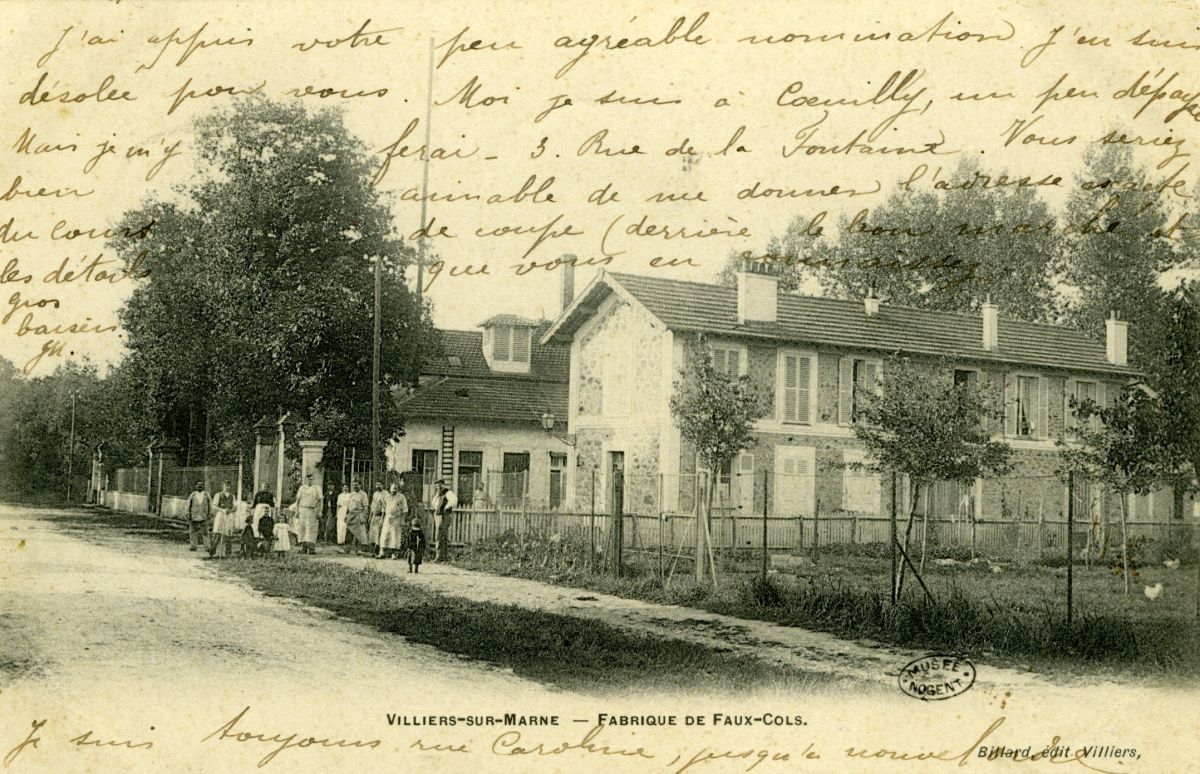 J'ai appris votre peu agréable nomination J'en suis
désolée pour vous. Moi je suis à Coeuilly, un peu dépaysée
Mais je m'y ferai - 3. Rue de la Fontaine. Vous seriez
bien aimable de me donner l'adresse exacte
du cours de coupe (derrière le bon marché et
les détails que vous en connaissez
gros
baisers
VILLIERS-SUR-MARNE — FABRIQUE DE FAUX-COLS.
MUSÉE
NOGENT
Billard, édit Villiers,
Je suis toujours rue Caroline, jusqu'à nouvel ordre